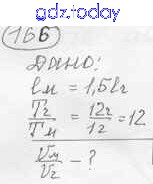 gdz.today
166
Дано:
lм = 1,5lг
Tг/Tм = 12г/1г = 12
Vм/Vг - ?